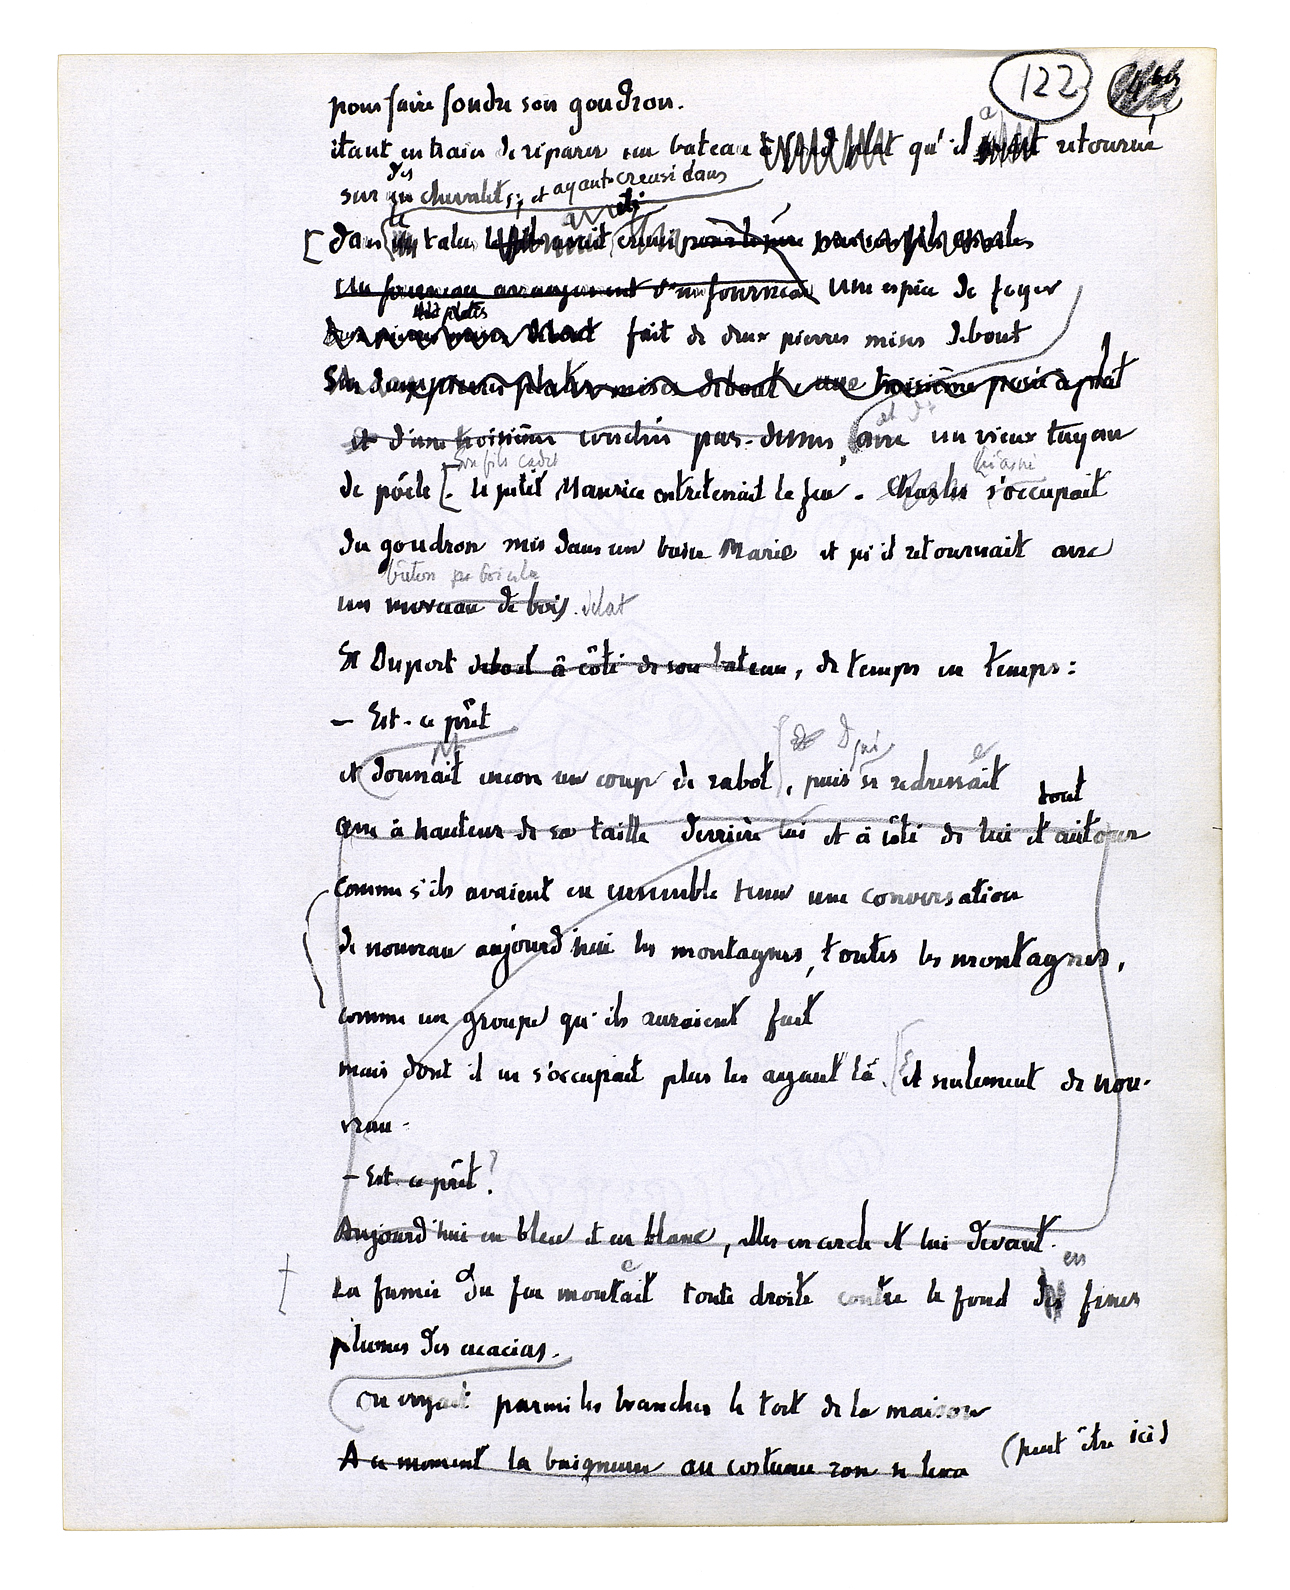 122
pour faire fondre son goudron.
étant en train de réparer un bateau à fond plat qu'il a retourné
des
sur un chevalets, et ayant creusé dans
le
dans un talus
un fourneau arrangement d'un fourneau une espèce de foyer
fait de deux pierres mises debout
Sur deux pierres plates mises debout une troisième posée à plat
et d'une troisième couchée par-dessus, avec un vieux tuyau
Son fils cadet
de poêle. le petit Maurice entretenait le feu. Charles s'occupait
du goudron mis dans un bain Marie et qu'il retournait avec
un morceau de bois.
Et Duport debout à côté de son bateau, de temps en temps :
— Est-ce prêt
et donnait encore un coup de rabot, puis se redressait
tout
avec à hauteur de sa taille derrière lui et à côté de lui et autour
comme s'ils avaient eu ensemble tenu une conversation
de nouveau aujourd'hui les montagnes, toutes les montagnes,
comme un groupe qu'ils auraient fait
mais dont il ne s'occupait plus les ayant là. Et seulement de nou-
veau -
— Est-ce prêt ?
Aujourd'hui en bleu et en blanc, elles en cercle et lui devant.
en
La fumée du feu montait toute droite contre le fond des fines
plumes des acacias.
On voyait parmi les branches le toit de la maison
(peut être ici)
A ce moment la baigneuse au costume rose se leva